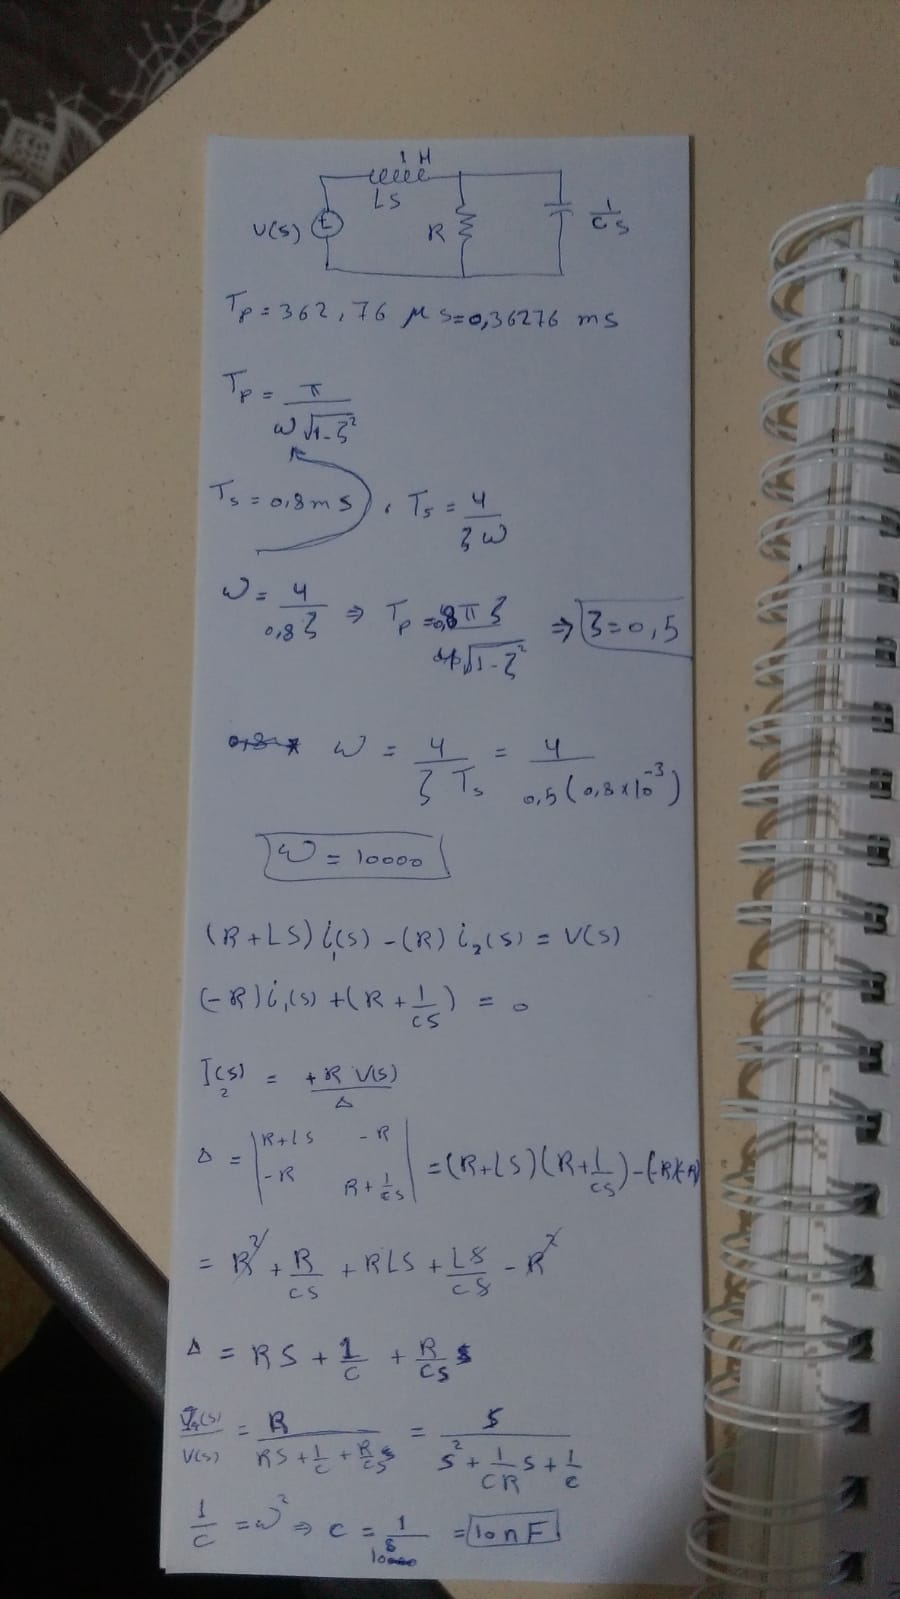 1 H
LS
V(S)
R
1/CS
Tp = 362,76 μs = 0,36276 ms
Tp = π / (ω √(1-ζ²))
Ts = 0,8 ms , Ts = 4 / (ζ ω)
ω = 4 / (0,8 ζ) ⇒ Tp = 0,8 π ζ / (4 √(1-ζ²)) ⇒ ζ = 0,5
ω = 4 / (ζ Ts) = 4 / (0,5 (0,8 x 10⁻³))
ω = 10000
(R + LS) i₁(S) - (R) i₂(S) = V(S)
(-R) i₁(S) + (R + 1/CS) = 0
I₂(S) = +R V(S) / Δ
Δ = | R + LS -R ; -R R + 1/CS | = (R + LS)(R + 1/CS) - (-R)(-R)
= R² + R/CS + RLS + LS/CS - R²
Δ = RS + 1/C + R/CS
I₂(S)/V(S) = R / (RS + 1/C + R/CS) = S / (S² + 1/CR S + 1/C)
1/C = ω² ⇒ C = 1/10⁸ = 10nF